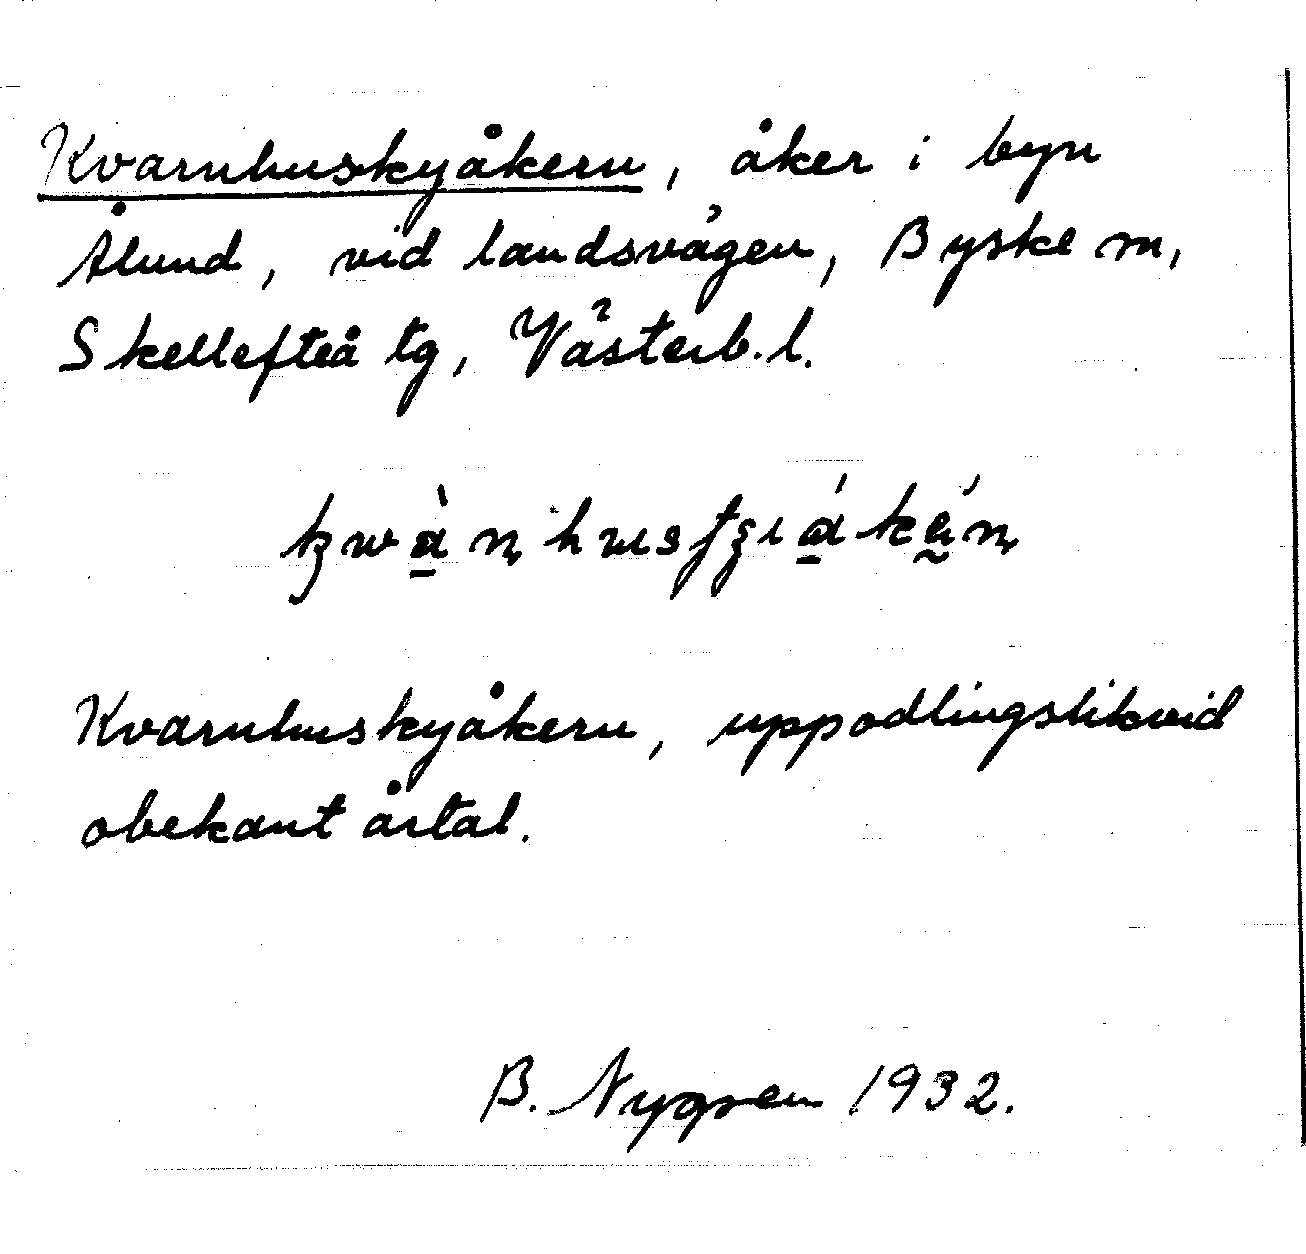 Kvarnhuskyåkern, åker i byn
Ålund, vid landsvägen, Byske sn,
Skellefteå tg, Västerb. l.
Kvarnhuskyåkern, uppodlingslikvid
obekant årtal.
B. Nygren 1932.